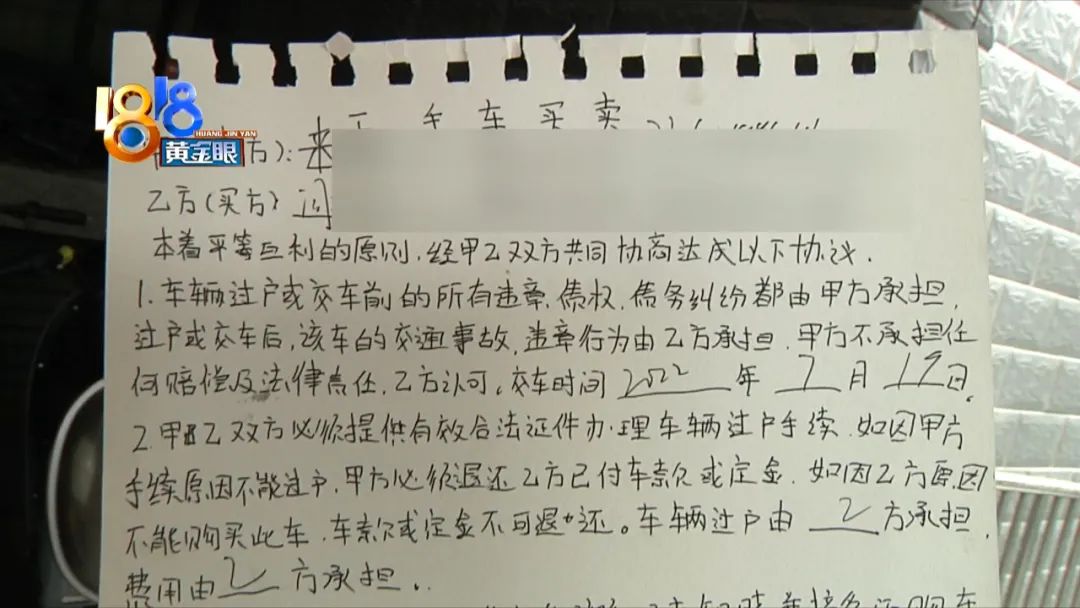 1818
HUANG JIN YAN
黄金眼
二手车买卖
方):来
乙方(买方)
本着平等互利的原则,经甲乙双方共同协商达成以下协议.
1.车辆过户或交车前的所有违章,债权、债务纠纷都由甲方承担,
过户或交车后,该车的交通事故,违章行为由乙方承担.甲方不承担任
何赔偿及法律责任,乙方认可。交车时间2022年7月19日.
2.甲乙双方必须提供有效合法证件办理车辆过户手续.如因甲方
手续原因不能过户,甲方必须退还乙方已付车款或定金.如因乙方原因
不能购买此车,车款或定金不可退还。车辆过户由乙方承担,
费用由乙方承担.